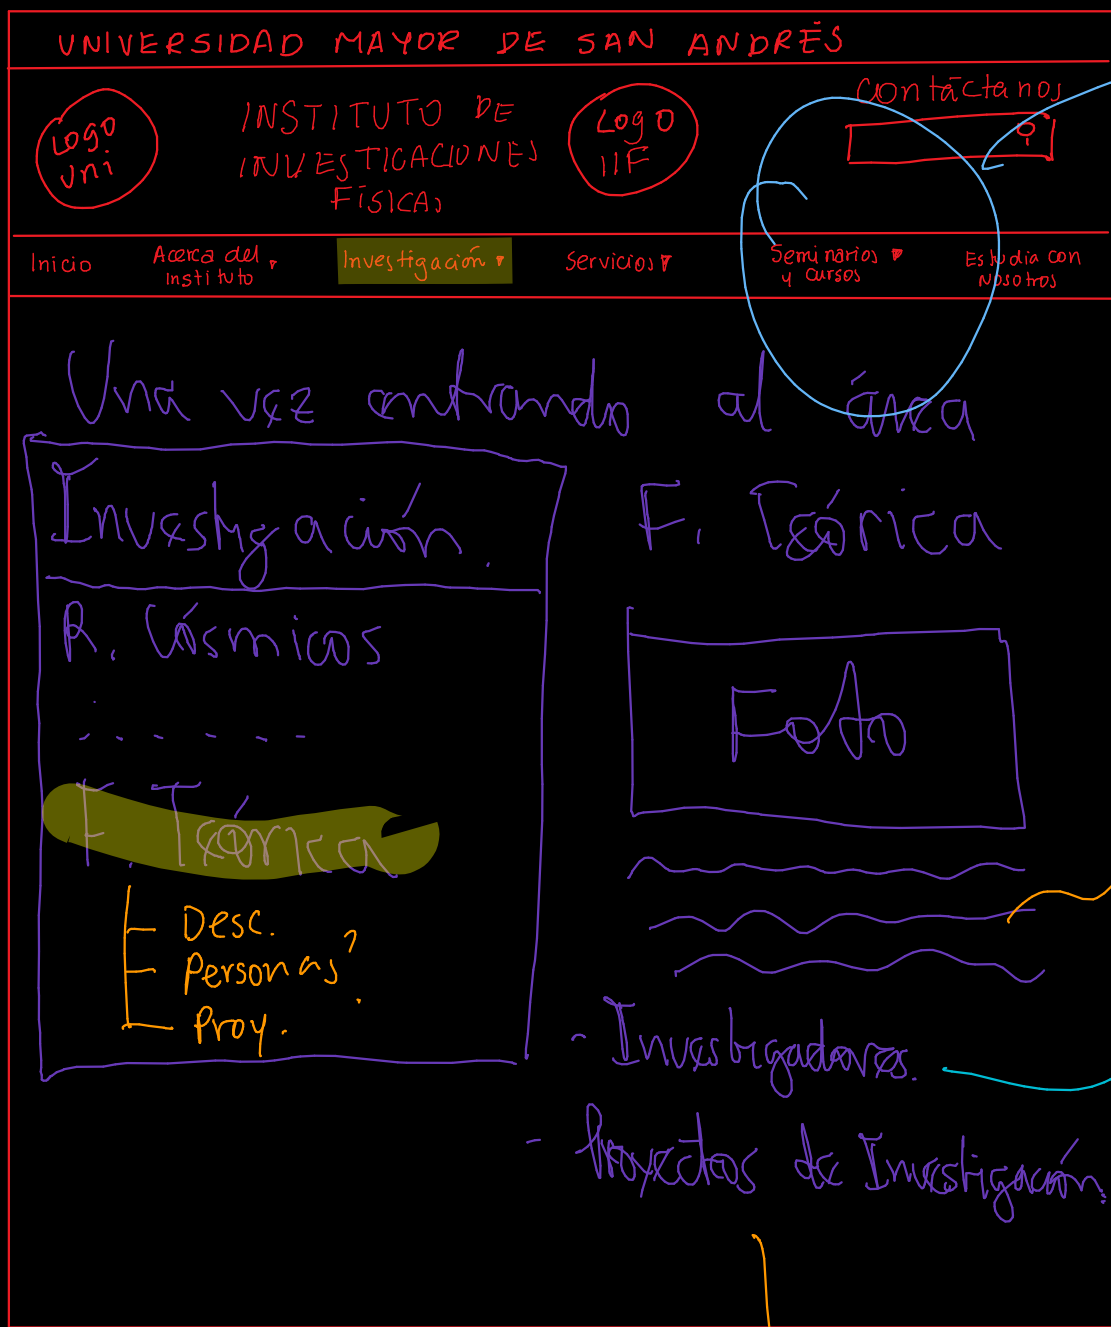 UNIVERSIDAD MAYOR DE SAN ANDRÉS
Contáctanos
Logo
Uni
INSTITUTO DE
INVESTIGACIONES
FÍSICAS
Logo
IIF
Inicio
Acerca del
instituto
Investigación
Servicios
Seminarios
y cursos
Estudia con
Nosotros
Una vez entrando al área
F. Teórica
Investigación.
R. Cósmicos
F. Teórica
Desc.
Personas?
Proy.
Foto
- Investigadores.
- Proyectos de Investigación.